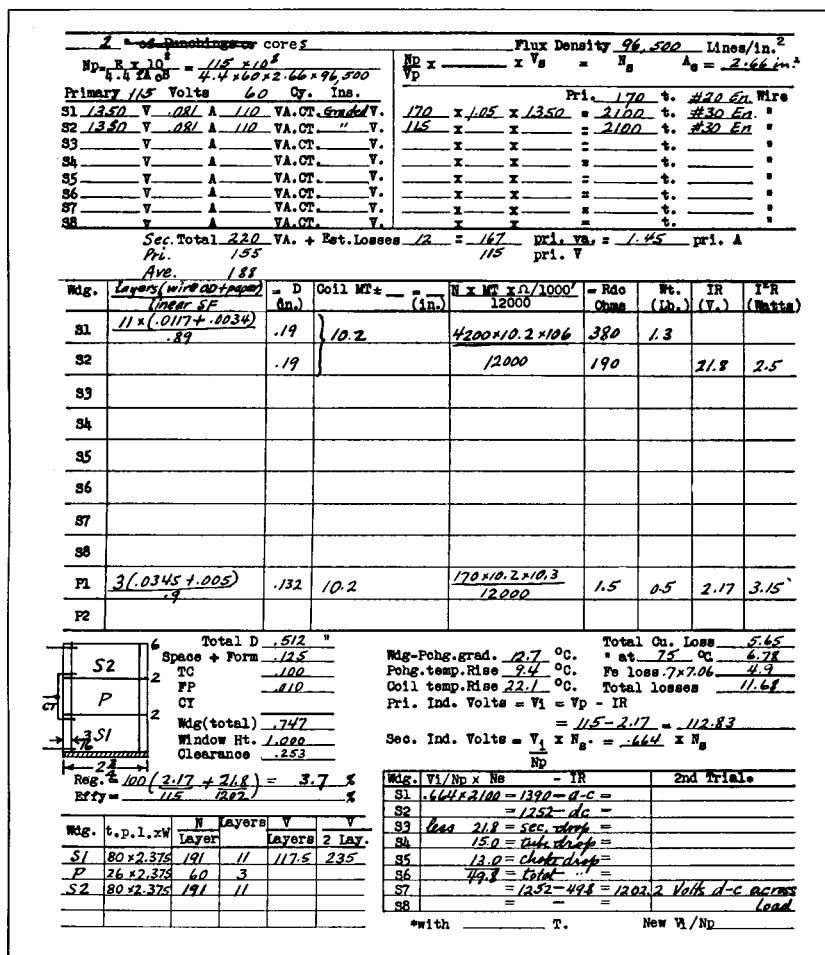 2 # of Punchings or cores Flux Density 96,500 Lines/in.2
Np = E x 10^8 / 4.4 fAcB = 115 x 10^8 / 4.4 x 60 x 2.66 x 96,500 Np/Vp x ___ x Vs = Ns Ac = 2.66 in.2
Primary 115 Volts 60 Cy. Ins. Pri. 170 t. #20 En. Wire
S1 1350 V .081 A 110 VA.CT. Graded V. 170 x 1.05 x 1350 = 2100 t. #30 En "
S2 1350 V .081 A 110 VA.CT. " V. 115 x x = 2100 t. #30 En. "
S3 V A VA.CT. V. x x = t. "
S4 V A VA.CT. V. x x = t. "
S5 V A VA.CT. V. x x = t. "
S6 V A VA.CT. V. x x = t. "
S7 V A VA.CT. V. x x = t. "
S8 V A VA.CT. V. x x = t. "
Sec. Total 220 VA. + Est. Losses 12 = 167 pri. va. = 1.45 pri. A
Pri. 155 115 pri. V
Ave. 188
Wdg. Layers (wire OD + paper) = D Coil MT± __ = __ N x MT x Ω/1000' = Rdc Wt. IR I²R
Linear SF (in.) (in.) 12000 Ohms (Lb.) (V.) (Watts)
S1 11 x (.0117 + .0034) / .89 .19 10.2 4200 x 10.2 x 106 380 1.3
S2 .19 12000 190 21.8 2.5
S3
S4
S5
S6
S7
S8
P1 3(.0345 + .005) / .9 .132 10.2 170 x 10.2 x 10.3 / 12000 1.5 0.5 2.17 3.15
P2
S2
P
S1
6
2
2
CT
3/16
2 3/4
Total D .512 "
Space + Form .125
TC .100
FP .010
CY
Wdg (total) .747
Window Ht. 1.000
Clearance .253
Wdg-Pchg. grad. 12.7 °C.
Pchg. temp. Rise 9.4 °C.
Coil temp. Rise 22.1 °C.
Total Cu. Loss 5.65
" at 75 °C 6.78
Fe loss .7 x 7.06 4.9
Total losses 11.68
Pri. Ind. Volts = Vi = Vp - IR
= 115 - 2.17 = 112.83
Sec. Ind. Volts = Vi/Np x Ns. = .664 x Ns
Reg. = 100 (2.17/115 + 21.8/1202) = 3.7 %
Effy = %
Wdg. t.p.l.xW N/Layer Layers V/Layers V/2 Lay.
S1 80 x 2.375 191 11 117.5 235
P 26 x 2.375 60 3
S2 80 x 2.375 191 11
Wdg. Vi/Np x Ns - IR 2nd Trial*
S1 .664 x 2100 = 1390 - a-c =
S2 = 1252 - dc =
S3 less 21.8 = sec. drop =
S4 15.0 = tube drop =
S5 13.0 = choke drop =
S6 49.8 = total " =
S7 = 1252 - 49.8 = 1202.2 Volts d-c across
S8 = - = load
*with ___ T. New Vi/Np